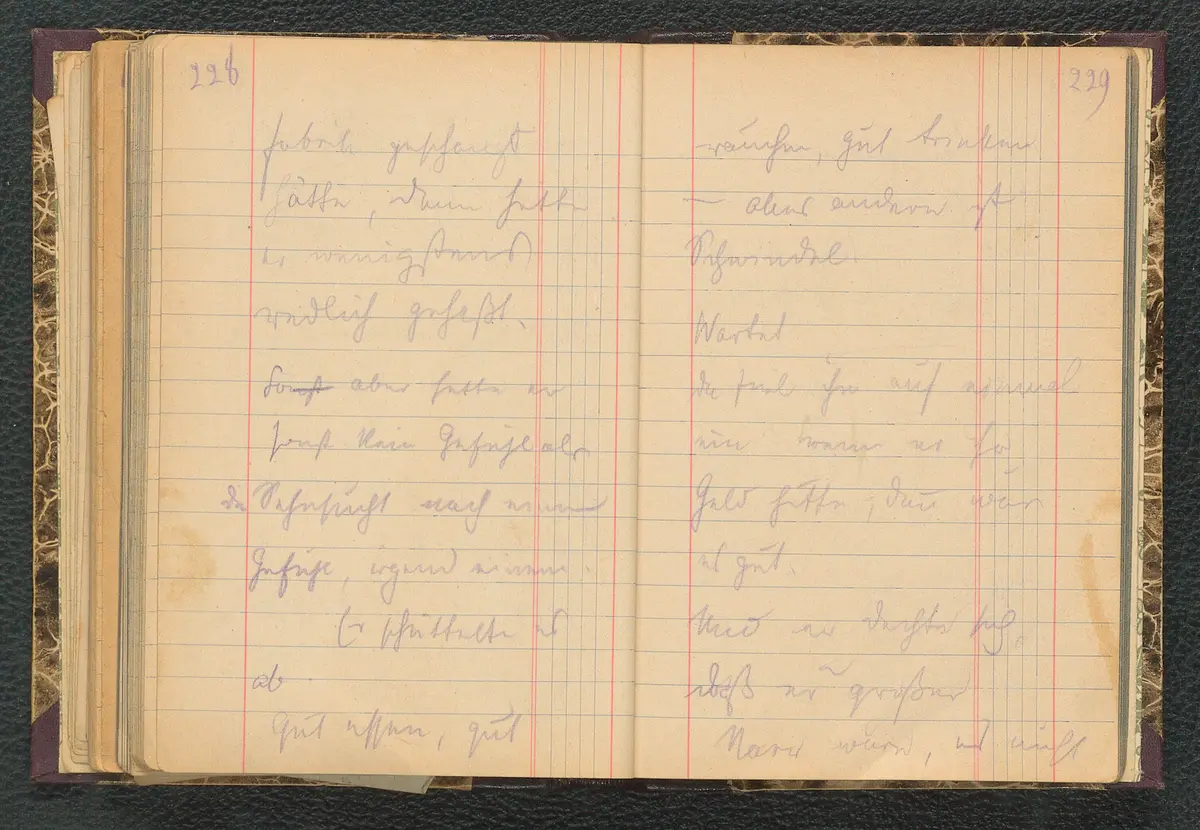 228
fabrik geschanzt
hätte, dann hätte
er wenigstens
redlich gehaßt.
Sonst aber hatte er
sonst kein Gefühl als
die Sehnsucht nach einem
Gefühl, irgend einem.
Er schüttelte es
ab
Gut essen, gut
229
rauchen, gut trinken
— alles andere ist
Schwindel.
Wartet
da fiel ihm auf einmal
ein wenn er
Geld hätte, dann wär
es gut.
Und er dachte sich,
daß er großer
Narr wäre, es nicht